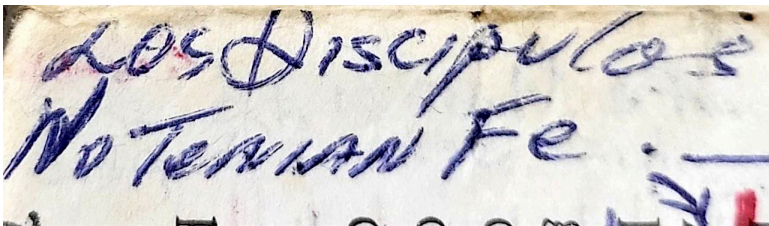 Los Discipulos
No Tenian Fe. _